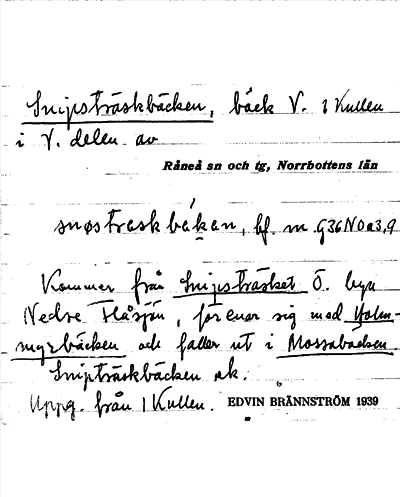 Snipsträskbäcken, bäck V. 1 Kullen
i V. delen av
Råneå sn och tg, Norrbottens län
bf. m. G36N0a3,9
Kommer från Snipsträsket Ö. byn
Nedre Flåsjön, förenar sig med Holm-
myrbäcken och faller ut i Mossabäcken.
Snipträskbäcken ek.
Uppg. från 1 Kullen. EDVIN BRÄNNSTRÖM 1939